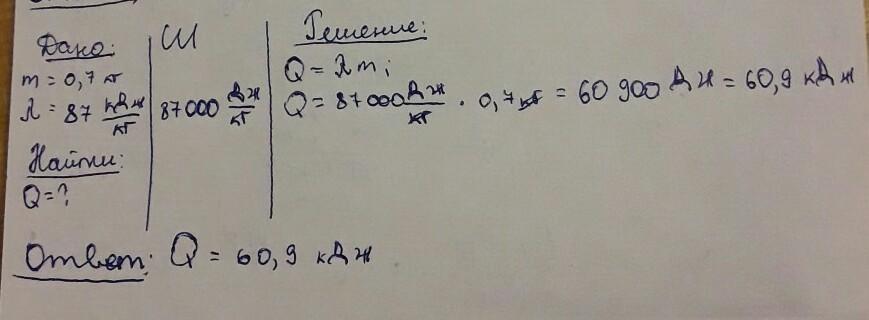 Дано:
m = 0,7 кг
λ = 87 кДж/кг
Найти:
Q = ?
СИ
87000 Дж/кг
Решение:
Q = λm;
Q = 87000 Дж/кг · 0,7 кг = 60 900 Дж = 60,9 кДж
Ответ: Q = 60,9 кДж